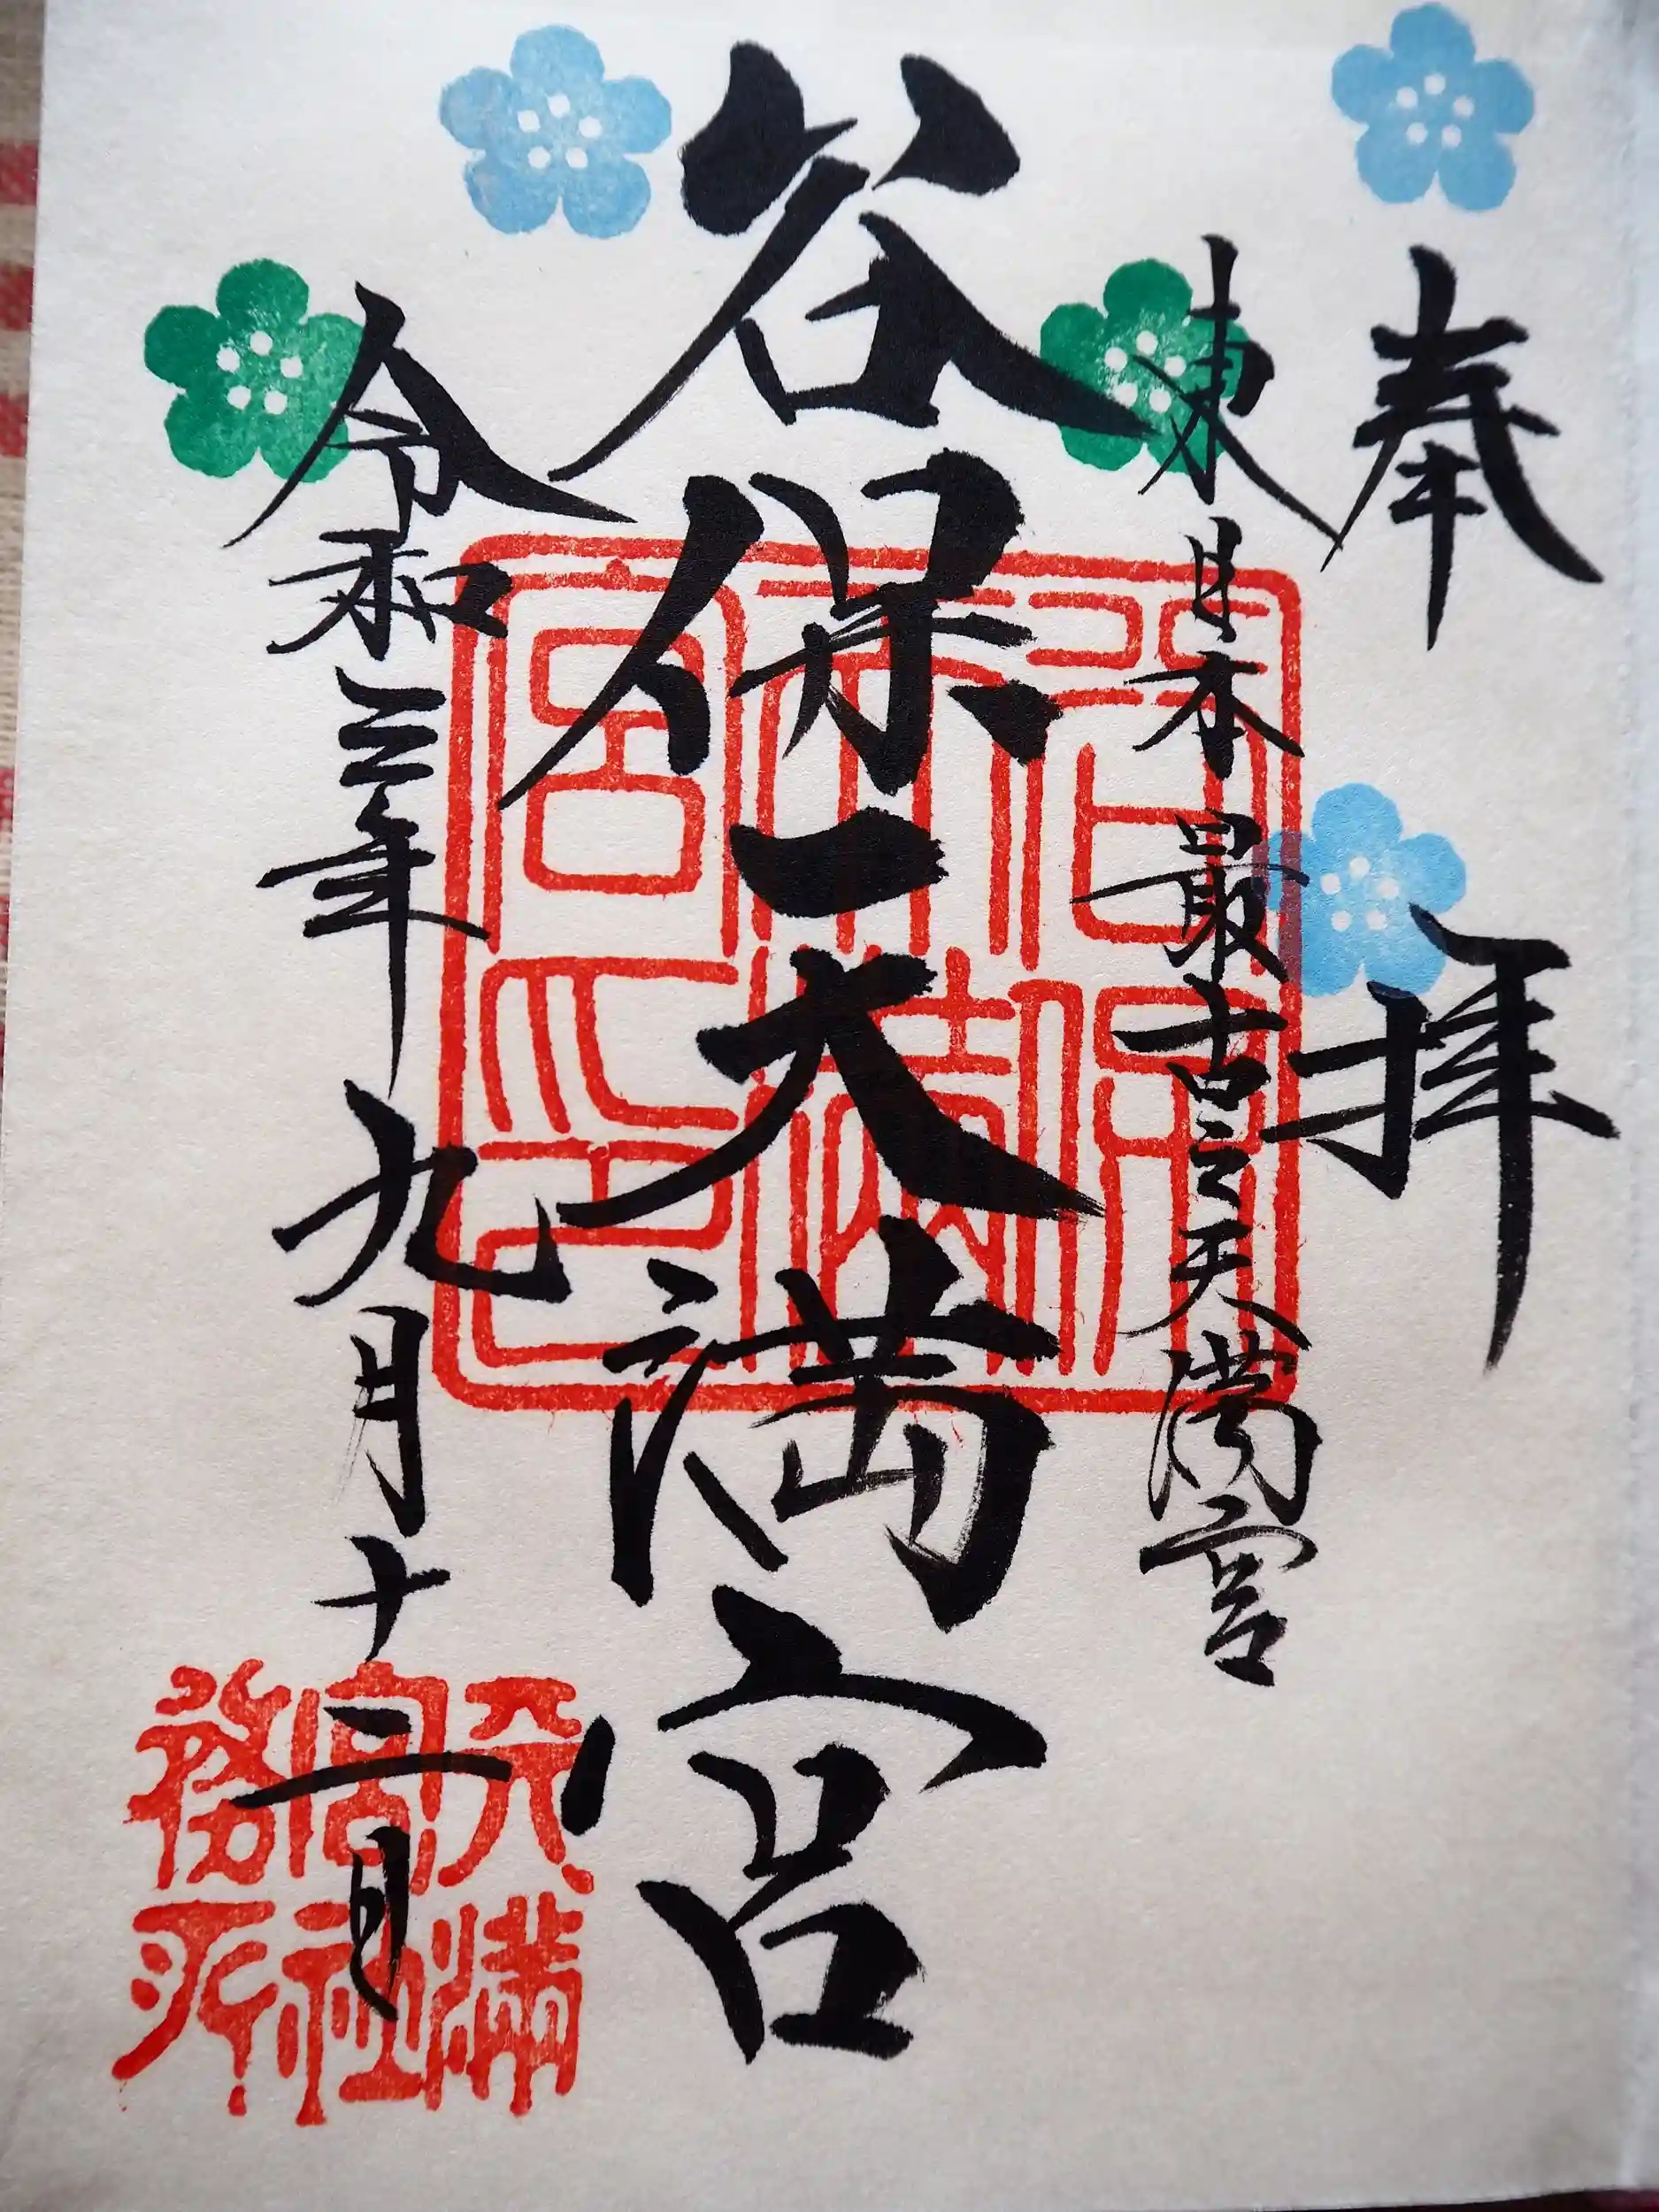 奉拝
東日本最古之天満宮
谷保天満宮
令和三年九月十二日
谷保天満宮之印
天満宮社務所